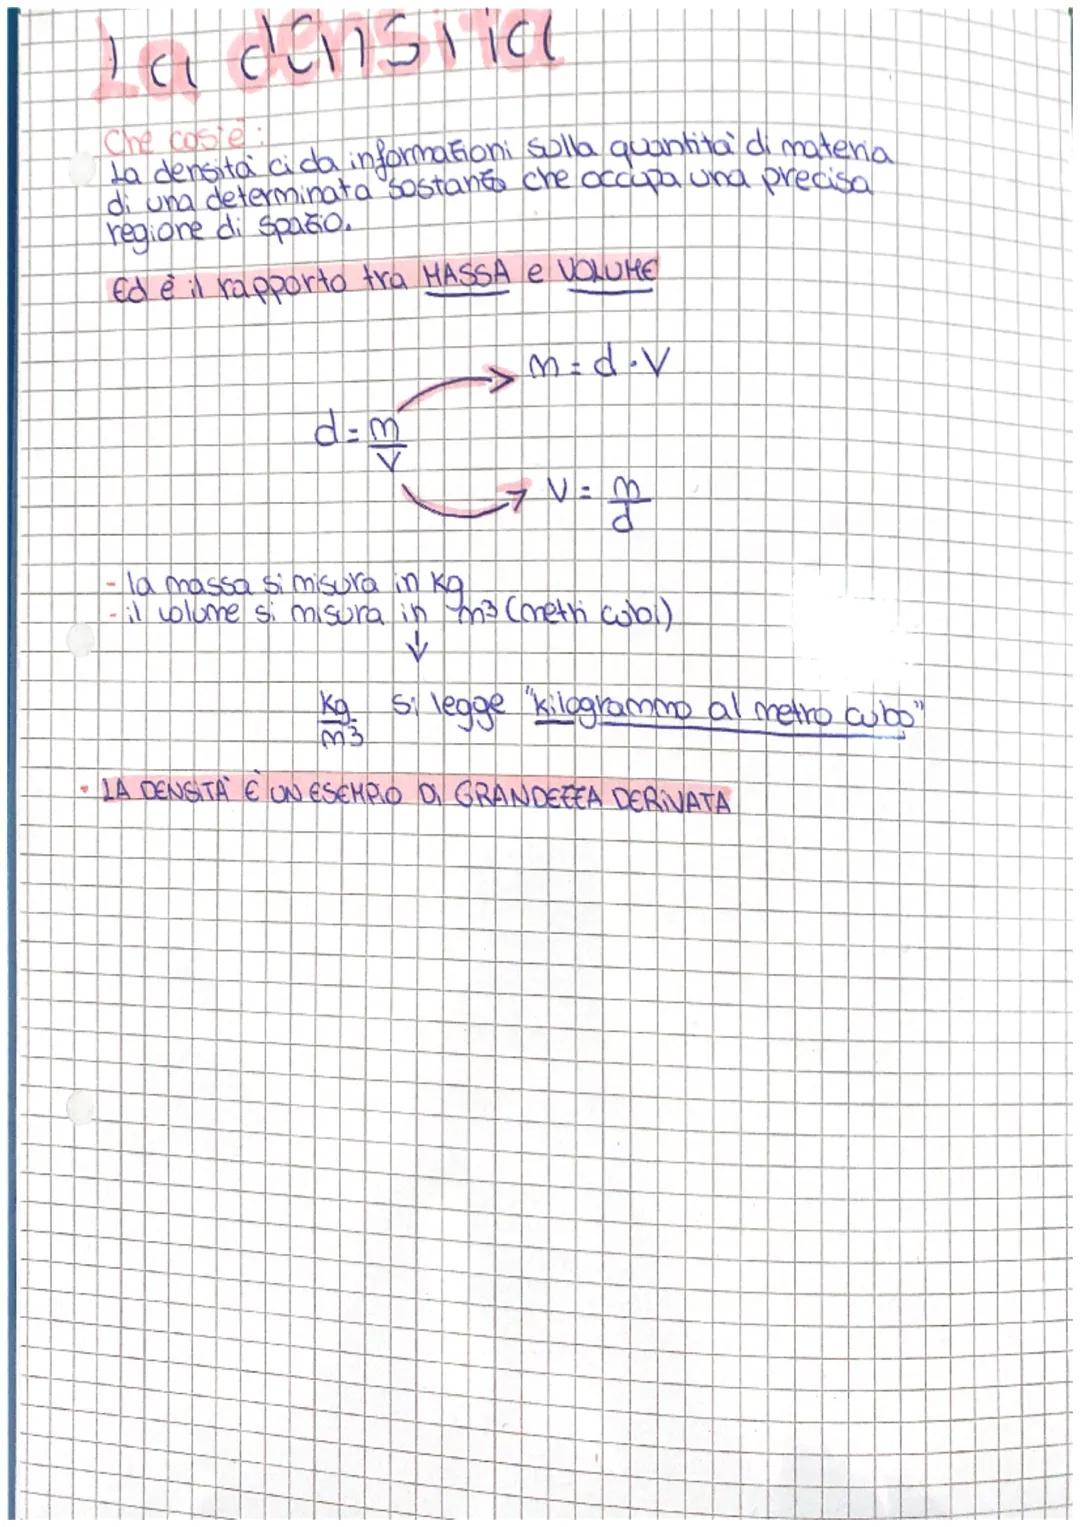 La densità
Che cos'è:
La densità ci da informazioni sulla quantità di materia
di una determinata sostanza che occupa una precisa
regione di spazio.
Ed è il rapporto tra MASSA e VOLUME
m = d · V
d = m/V
V = m/d
- la massa si misura in kg
- il volume si misura in m³ (metri cubi)
↓
kg/m³ si legge "kilogrammo al metro cubo"
• LA DENSITÀ È UN ESEMPIO DI GRANDEZZA DERIVATA